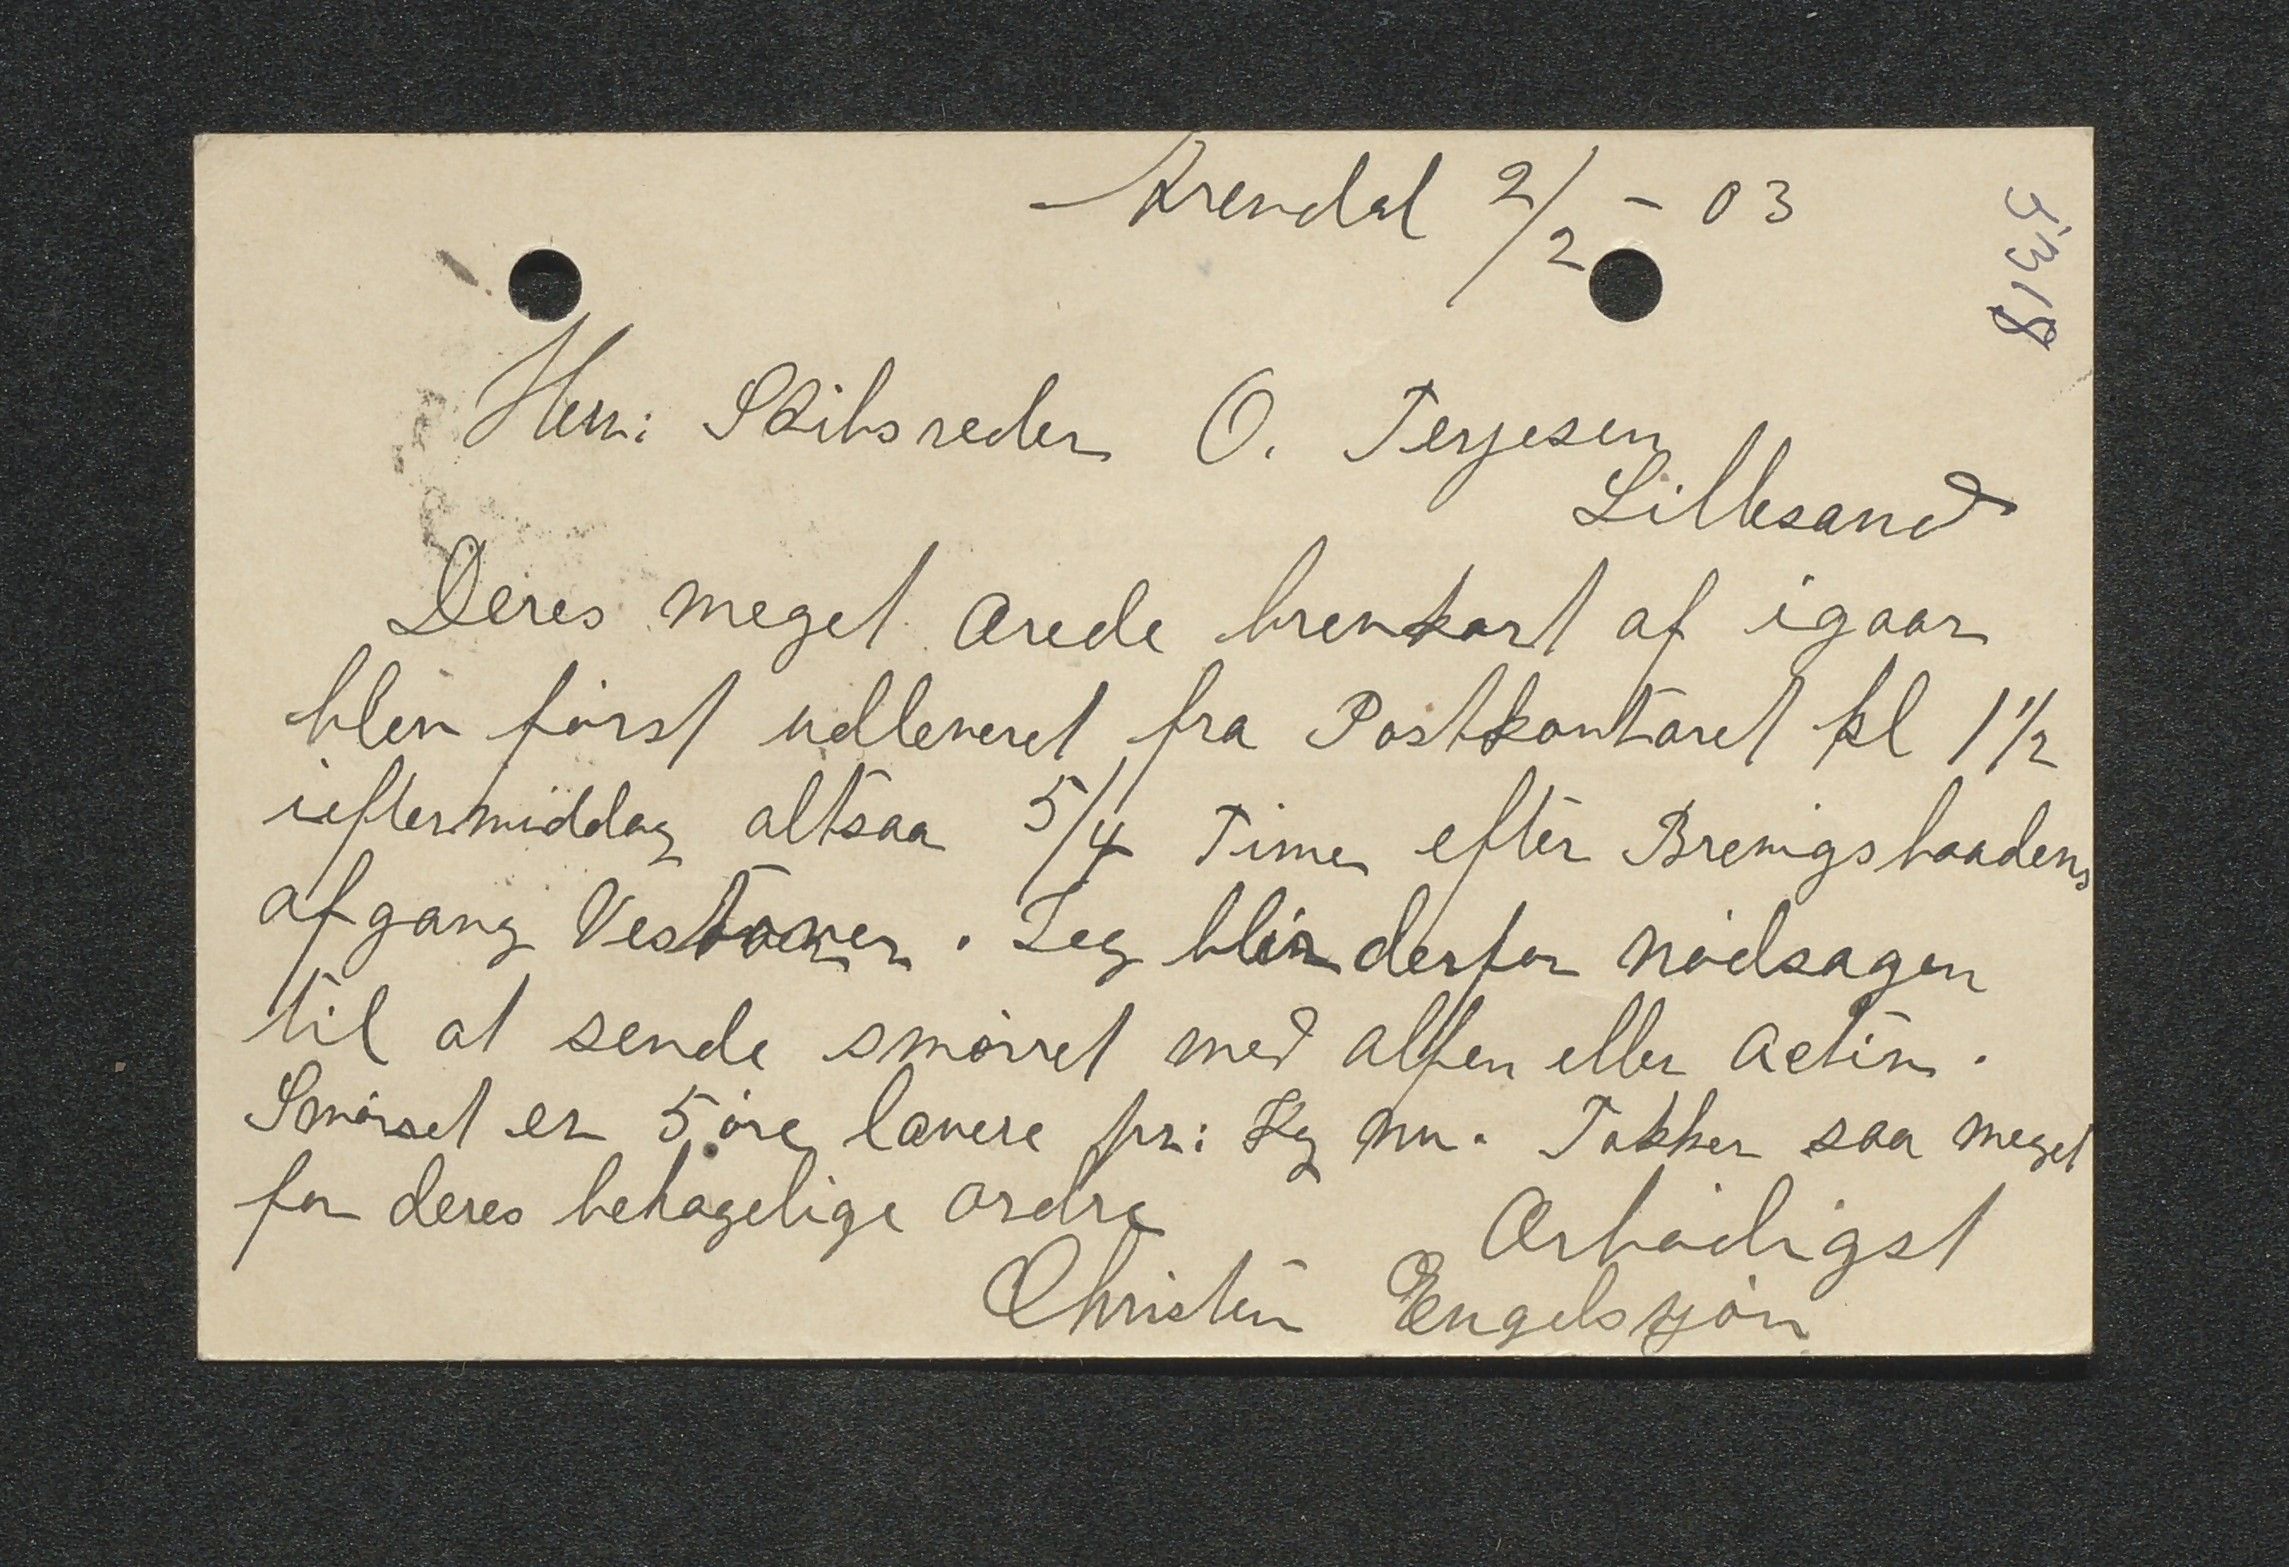 Arendal 2/2 - 03
Herr: Skibsreder O. Terjesen
Lillesand
Deres meget ærede brevkort af igaar
blev først udleveret fra Postkontoret kl 1 1/2
ieftermiddag altsaa 5/4 Time efter Brevigsbaadens
afgang Vestover. Jeg blir derfor nødsagen
til at sende smørret med alfen eller Activ.
Smørret er 5 øre lavere pr: Kg nu. Takker saa meget
for deres behagelige ordre
Ærbødigst
Christen Engelsgjön